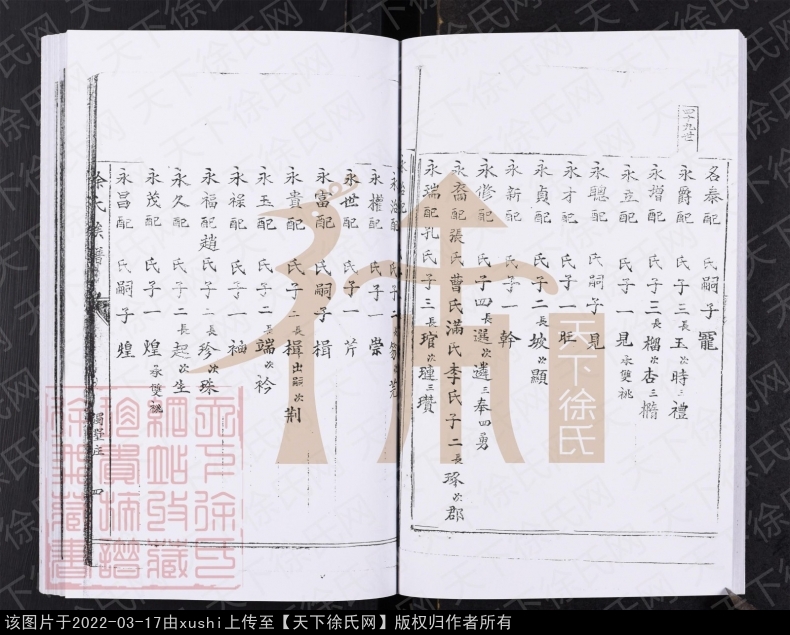 四十九世
名泰配　氏嗣子寵
永爵配　氏子三長玉次時三禮
永增配　氏子三長榴次杏三櫓
永立配　氏子一見承雙祧
永聰配　氏嗣子見
永才配　氏子一旺
永貞配　氏子二長坡次顯
永新配　氏子一幹
永修配　氏子四長選次遴三奉四勇
永裔配張氏曹氏滿氏李氏子二長琢次郡
永瑞配孔氏子三長琯次璉三瓚
永權配　氏子一崇
永世配　氏子一芹
永富配　氏嗣子楫
永貴配　氏子二長楫出嗣次荆
永玉配　氏子二長端次衿
永祿配　氏子一袖
永福配趙氏子二長珍次珠
永久配　氏子二長起次生
永茂配　氏子一煌承雙祧
永昌配　氏嗣子煌
徐氏族譜
四
天下徐氏
天下徐氏网
该图片于2022-03-17由xushi上传至【天下徐氏网】版权归作者所有